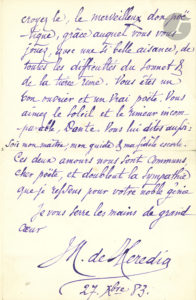 croyez le, le merveilleux don poë-
tique, grâce auquel vous vous
jouez, avec une si belle aisance, de
toutes les difficultés du sonnet &
de la tierce rime. Vous êtes un
bon ouvrier et un vrai poète. Vous
aimez le soleil et le rimeur incom-
parable, Dante. Vous lui dites aussi
Sois mon maître, mon guide & ma
Ces deux amours nous sont communs,
cher poète, et doublent la sympathie
que je ressens pour votre noble génie
Je vous serre les mains de grand
cœur
M. de Heredia
27. Xbre 83.